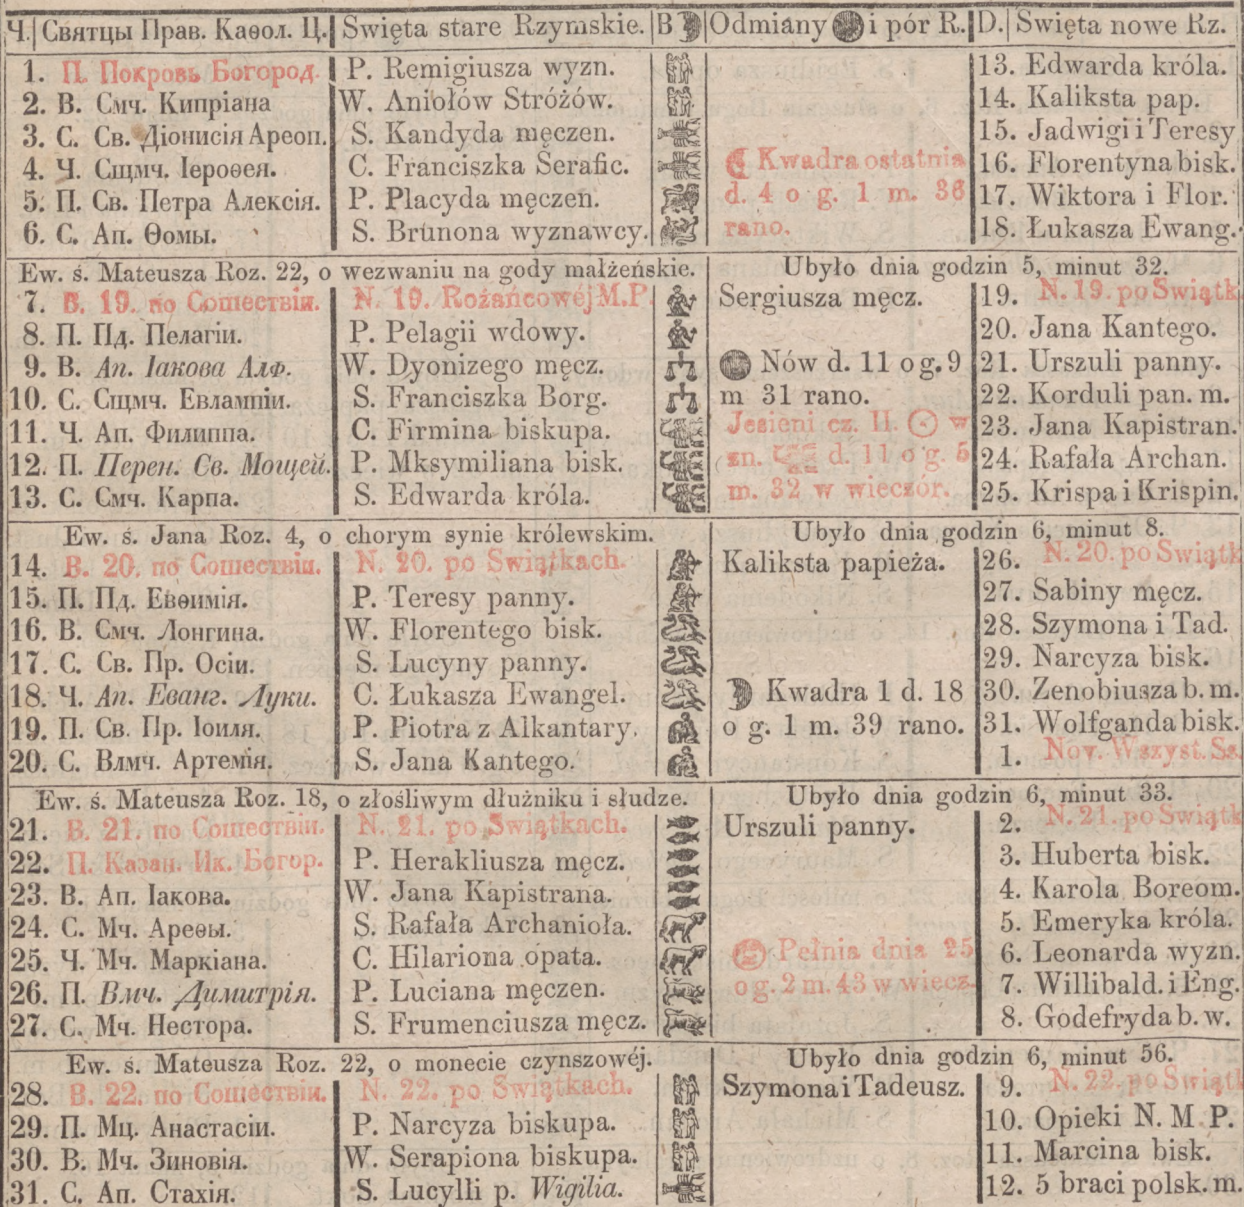 Ч. Святцы Прав. Каѳол. Ц. Swięta stare Rzymskie. B Odmiany i pór R. D. Swięta nowe Rz.
1. П. Покровъ Богород. P. Remigiusza wyzn. 13. Edwarda króla.
2. В. Смч. Кипріана W. Aniołów Stróżów. 14. Kaliksta pap.
3. С. Св. Діонисія Ареоп. S. Kandyda męczen. 15. Jadwigi i Teresy
4. Ч. Сщмч. Іероѳея. C. Franciszka Serafic. Kwadra ostatnia 16. Florentyna bisk.
5. П. Св. Петра Алексія. P. Placyda męczen. d. 4 o g. 1 m. 36 17. Wiktora i Flor.
6. С. Ап. Ѳомы. S. Brunona wyznawcy. rano. 18. Łukasza Ewang.
Ew. ś. Mateusza Roz. 22, o wezwaniu na gody małżeńskie. Ubyło dnia godzin 5, minut 32.
7. В. 19. по Сошествіи. N. 19. Rożańcowéj M.P. Sergiusza męcz. 19. N. 19. po Swiątk
8. П. Пд. Пелагіи. P. Pelagii wdowy. 20. Jana Kantego.
9. В. Ап. Іакова Алф. W. Dyonizego męcz. Nów d. 11 o g. 9 21. Urszuli panny.
10. С. Сщмч. Евлампіи. S. Franciszka Borg. m 31 rano. 22. Korduli pan. m.
11. Ч. Ап. Филиппа. C. Firmina biskupa. Jesieni cz. II. w 23. Jana Kapistran.
12. П. Перен. Св. Мощей. P. Mksymiliana bisk. zn. d. 11 o g. 5 24. Rafała Archan.
13. С. Смч. Карпа. S. Edwarda króla. m. 32 w wieczór. 25. Krispa i Krispin.
Ew. ś. Jana Roz. 4, o chorym synie królewskim. Ubyło dnia godzin 6, minut 8.
14. В. 20. по Сошествіи. N. 20. po Swiątkach. Kaliksta papieża. 26. N. 20. po Swiątk
15. П. Пд. Евѳимія. P. Teresy panny. 27. Sabiny męcz.
16. В. Смч. Лонгина. W. Florentego bisk. 28. Szymona i Tad.
17. С. Св. Пр. Осіи. S. Lucyny panny. 29. Narcyza bisk.
18. Ч. Ап. Еванг. Луки. C. Łukasza Ewangel. Kwadra 1 d. 18 30. Zenobiusza b. m.
19. П. Св. Пр. Іоиля. P. Piotra z Alkantary. o g. 1 m. 39 rano. 31. Wolfganda bisk.
20. С. Влмч. Артемія. S. Jana Kantego. 1. Nov. Wszyst. Ss.
Ew. ś. Mateusza Roz. 18, o złośliwym dłużniku i słudze. Ubyło dnia godzin 6, minut 33.
21. В. 21. по Сошествіи. N. 21. po Swiątkach. Urszuli panny. 2. N. 21. po Swiątk
22. П. Казан. Ик. Богор. P. Herakliusza męcz. 3. Huberta bisk.
23. В. Ап. Іакова. W. Jana Kapistrana. 4. Karola Boreom.
24. С. Мч. Ареѳы. S. Rafała Archanioła. 5. Emeryka króla.
25. Ч. Мч. Маркіана. C. Hilariona opata. Pełnia dnia 25 6. Leonarda wyzn.
26. П. Вмч. Димитрія. P. Luciana męczen. o g. 2 m. 43 w wiecz. 7. Willibald. i Eng.
27. С. Мч. Нестора. S. Frumenciusza męcz. 8. Godefryda b. w.
Ew. ś. Mateusza Roz. 22, o monecie czynszowéj. Ubyło dnia godzin 6, minut 56.
28. В. 22. по Сошествіи. N. 22. po Swiątkach. Szymona i Tadeusz. 9. N. 22. po Swiątk
29. П. Мц. Анастасіи. P. Narcyza biskupa. 10. Opieki N. M P.
30. В. Мч. Зиновія. W. Serapiona biskupa. 11. Marcina bisk.
31. С. Ап. Стахія. S. Lucylli p. Wigilia. 12. 5 braci polsk. m.